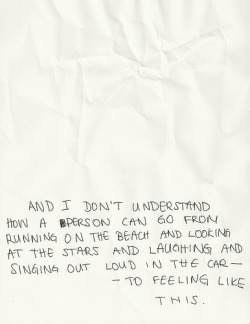 AND I DON'T UNDERSTAND
HOW A PERSON CAN GO FROM
RUNNING ON THE BEACH AND LOOKING
AT THE STARS AND LAUGHING AND
SINGING OUT LOUD IN THE CAR—
— TO FEELING LIKE
THIS.